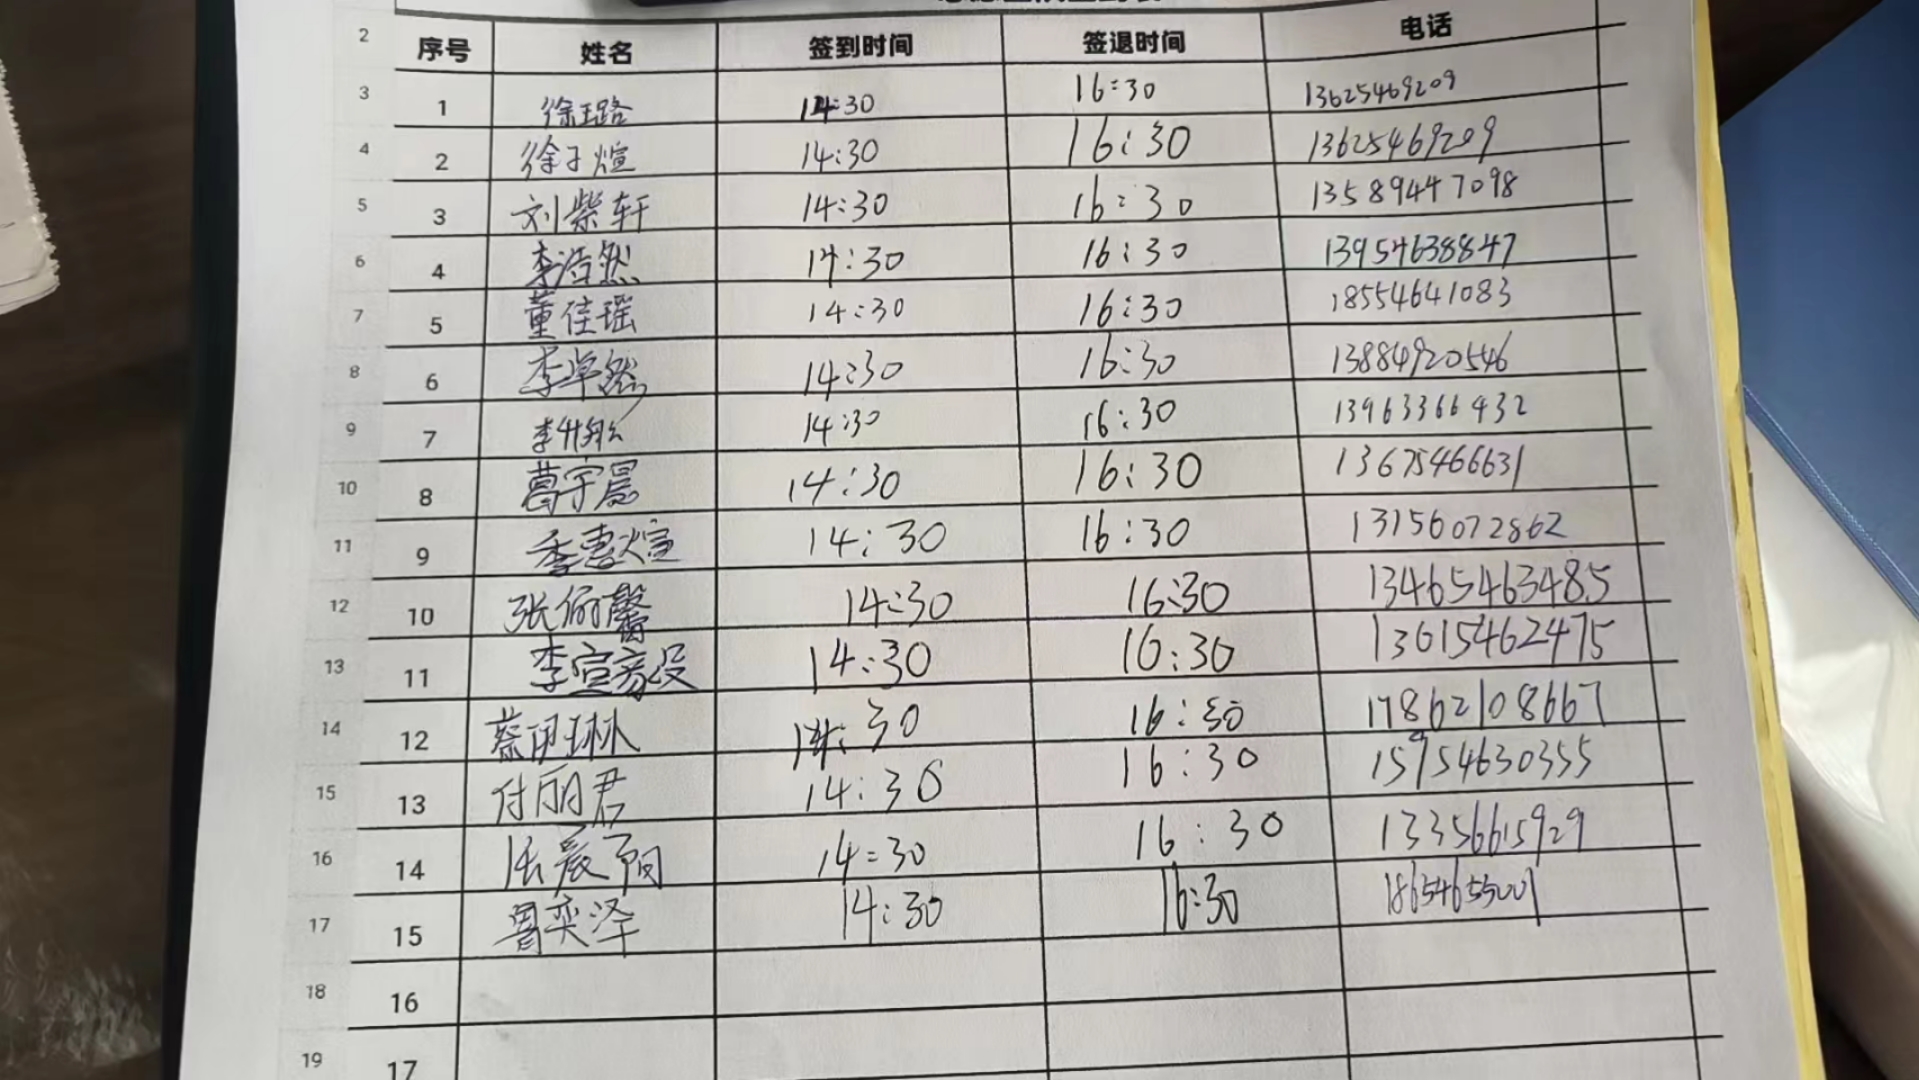 2 序号 姓名 签到时间 签退时间 电话
3 1 徐璐 14:30 16:30 13625469209
4 2 徐子煊 14:30 16:30 13625469209
5 3 刘紫轩 14:30 16:30 13589447098
6 4 李浩然 14:30 16:30 13954638847
7 5 董佳瑶 14:30 16:30 18554641083
8 6 李卓然 14:30 16:30 13884920546
9 7 14:30 16:30 13963366432
10 8 葛宇晨 14:30 16:30 13675466631
11 9 季惠煊 14:30 16:30 13156072862
12 10 张俪馨 14:30 16:30 13465463485
13 11 14:30 16:30 13615462475
14 12 14:30 16:30 17862108667
15 13 付丽君 14:30 16:30 15954630355
16 14 14:30 16:30 13356615929
17 15 曹奕泽 14:30 16:30 18654655001
18 16
19 17